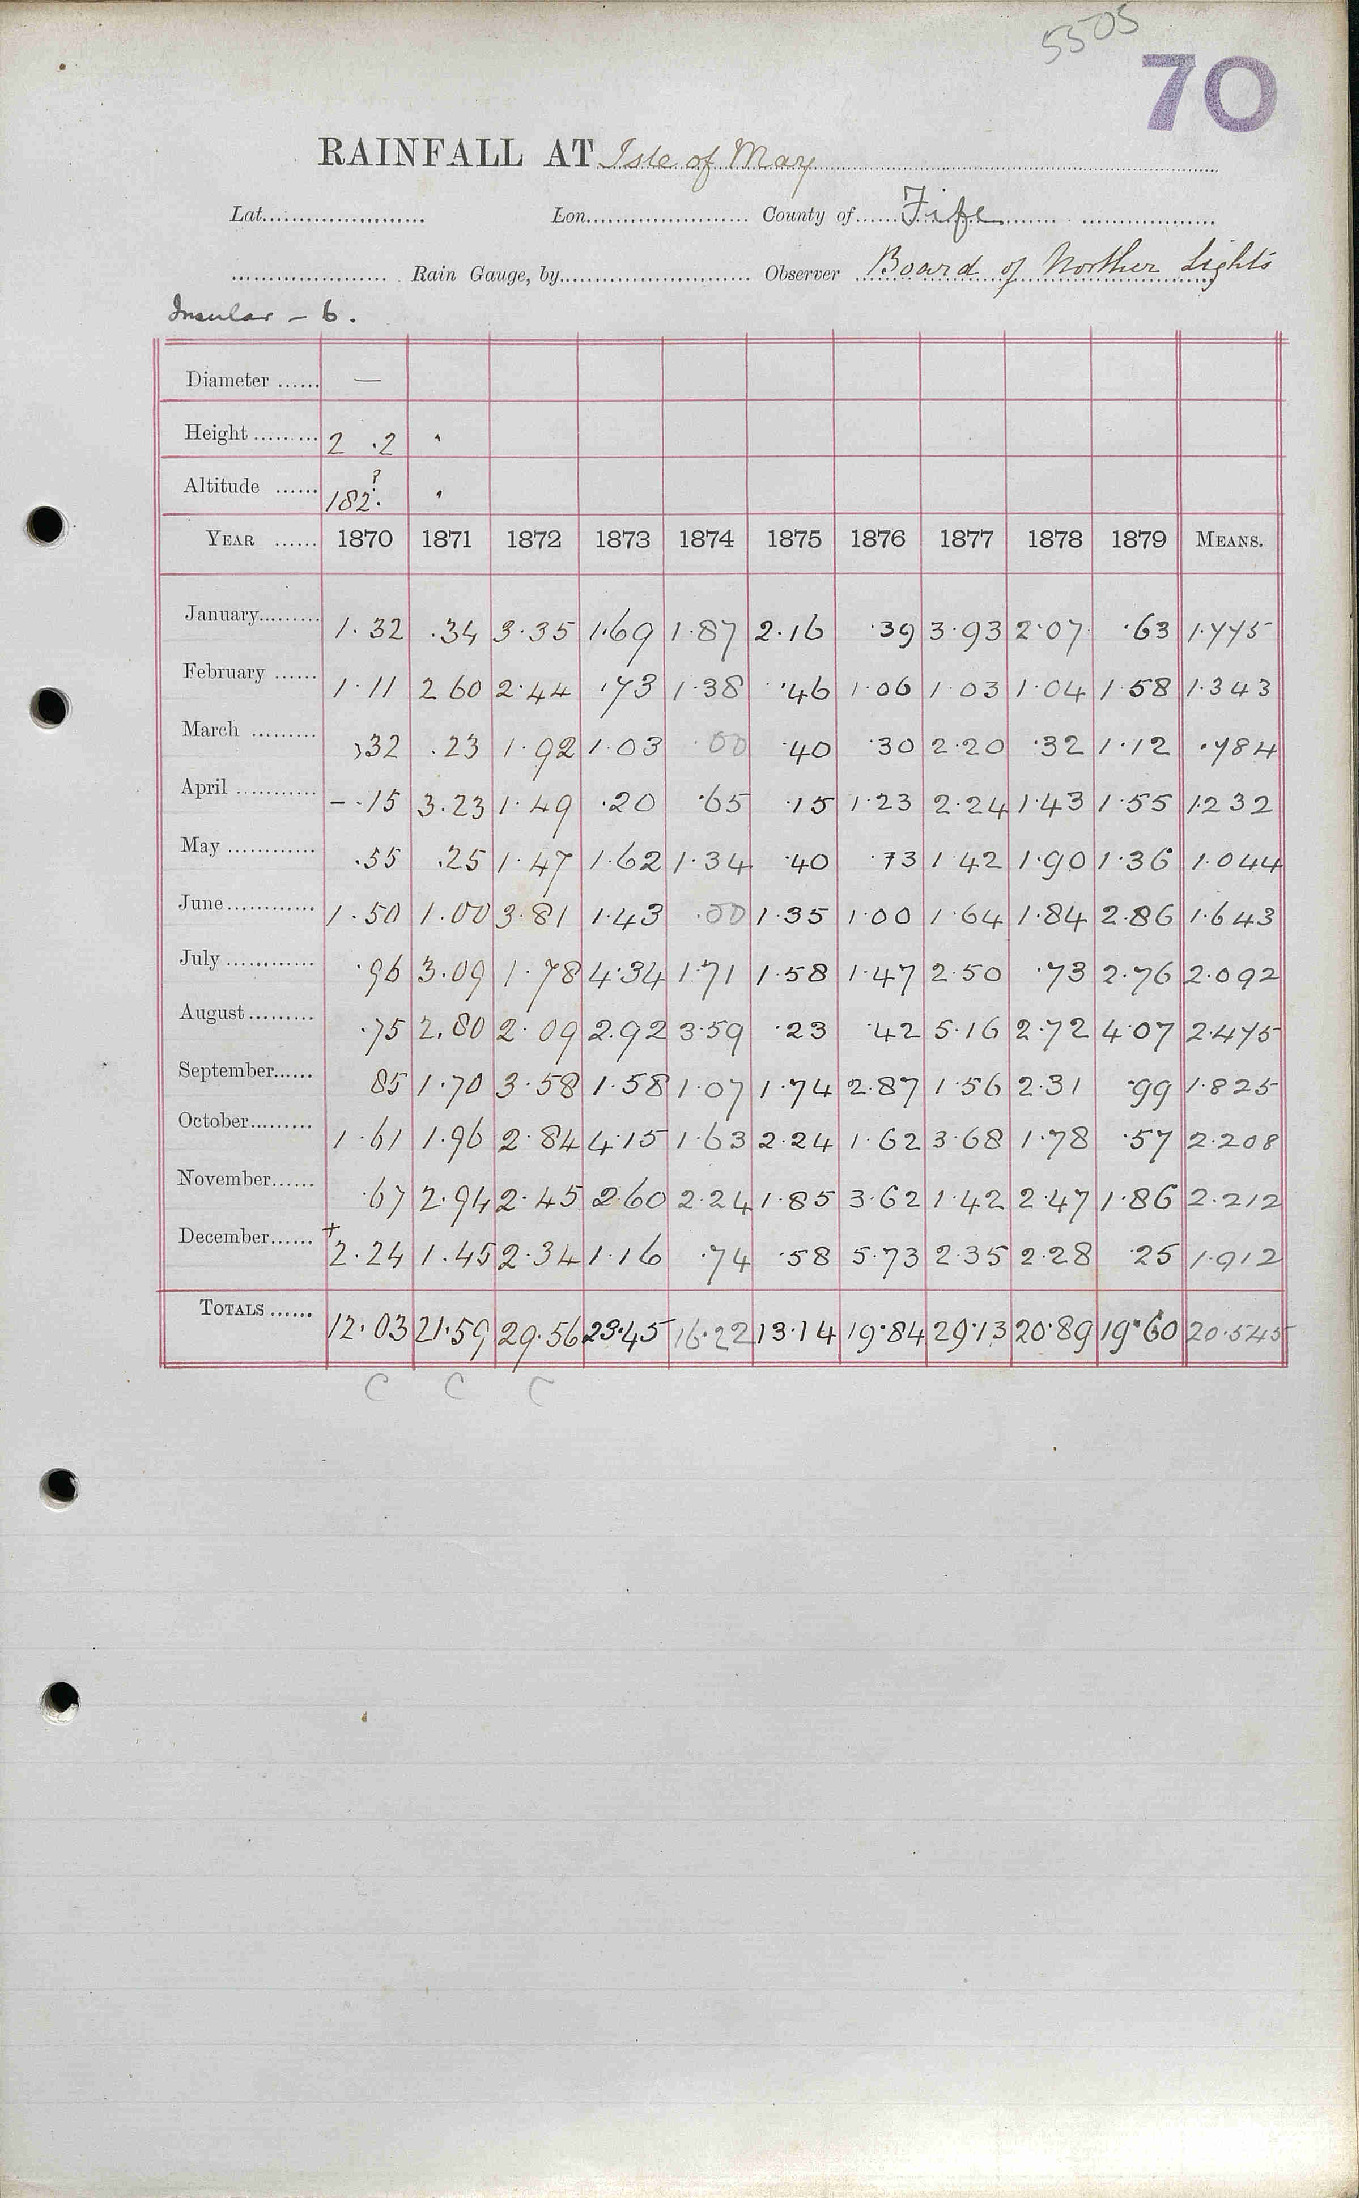 5505
70
RAINFALL AT Isle of May
Lat. Lon. County of Fife
Rain Gauge, by Observer Board of Norther Lights
Insular - 6.
Diameter —
Height 2 .2 .
Altitude 182? .
YEAR 1870 1871 1872 1873 1874 1875 1876 1877 1878 1879 MEANS.
January 1.32 .34 3.35 1.69 1.87 2.16 .39 3.93 2.07 .63 1.775
February 1.11 2 60 2.44 .73 1.38 .46 1.06 1.03 1.04 1.58 1.343
March .32 .23 1.92 1.03 .00 .40 .30 2.20 .32 1.12 .784
April -.15 3.23 1.49 .20 .65 .15 1.23 2.24 1.43 1.55 1.232
May .55 .25 1.47 1.62 1.34 .40 .73 1.42 1.90 1.36 1.044
June 1.50 1.00 3.81 1.43 .00 1.35 1.00 1.64 1.84 2.86 1.643
July .96 3.09 1.78 4.34 1.71 1.58 1.47 2.50 .73 2.76 2.092
August .75 2.80 2.09 2.92 3.59 .23 .42 5.16 2.72 4.07 2.475
September 85 1.70 3.58 1.58 1.07 1.74 2.87 1.56 2.31 .99 1.825
October 1.61 1.96 2.84 4.15 1.63 2.24 1.62 3.68 1.78 .57 2.208
November .67 2.94 2.45 2.60 2.24 1.85 3.62 1.42 2.47 1.86 2.212
December +2.24 1.45 2.34 1.16 .74 .58 5.73 2.35 2.28 .25 1.912
TOTALS 12.03 21.59 29.56 23.45 16.22 13.14 19.84 29.13 20.89 19.60 20.545
C C C